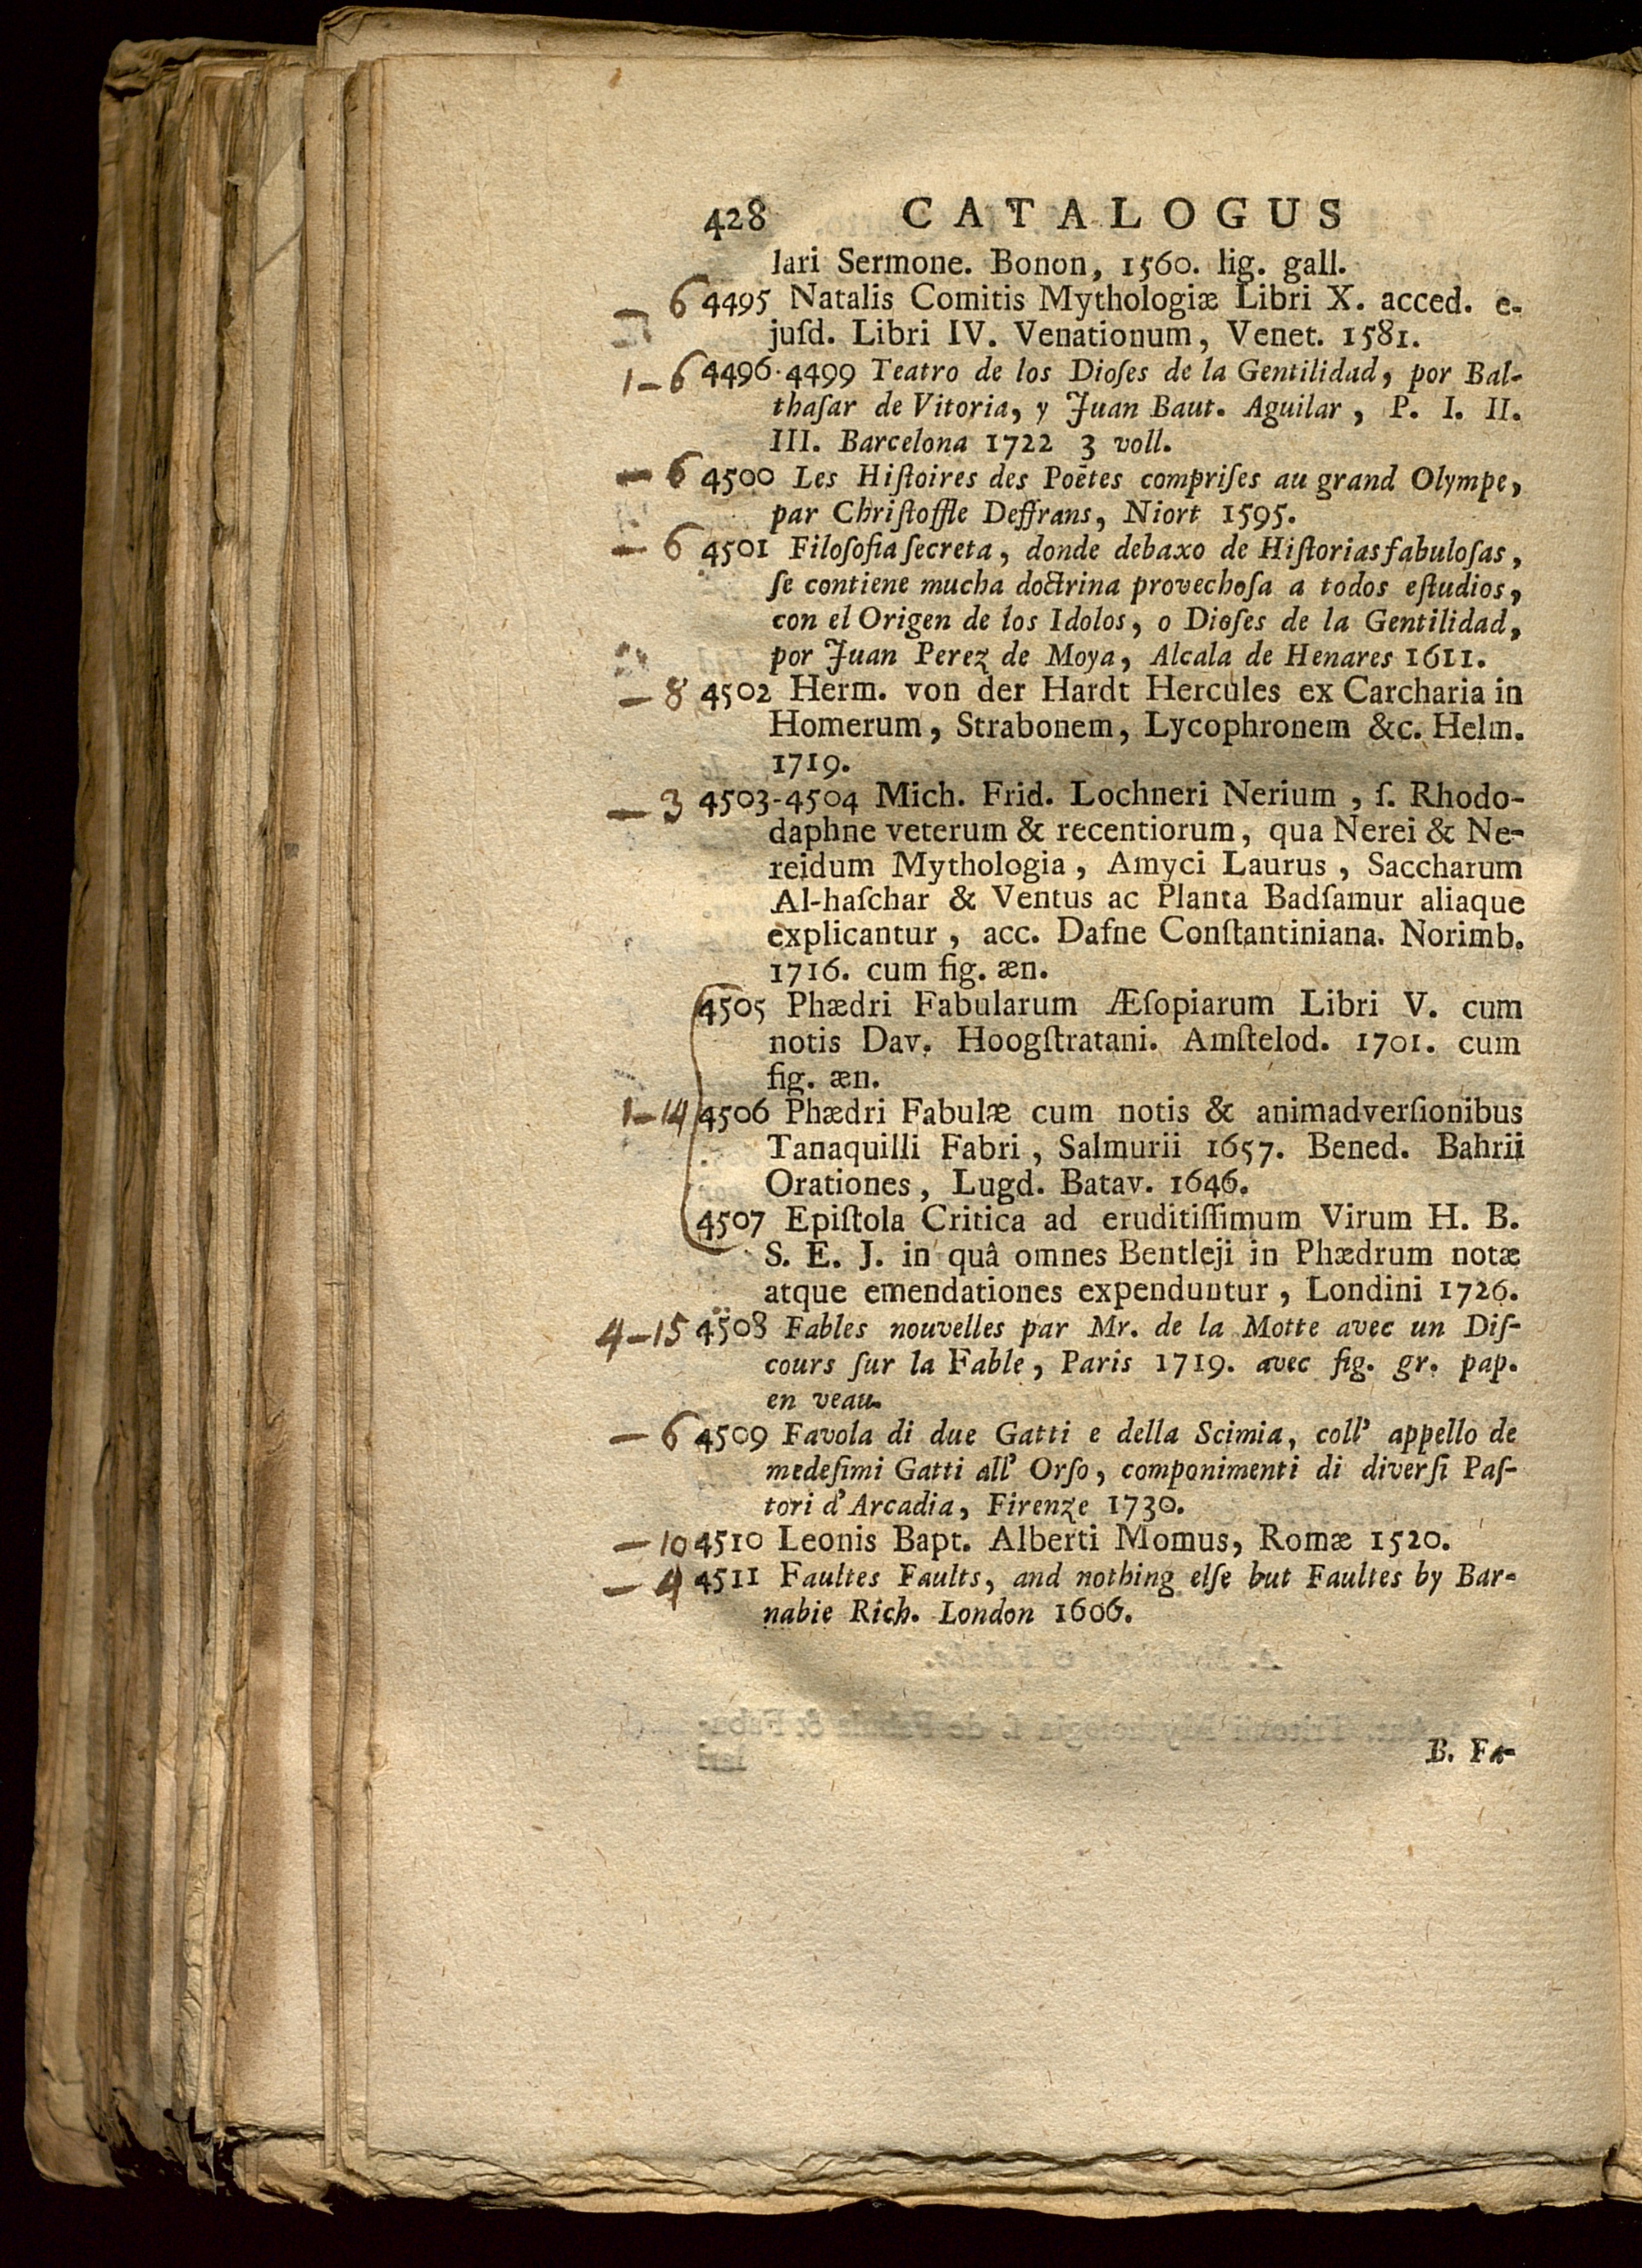 428 CATALOGUS
lari Sermone. Bonon, 1560. lig. gall.
— 6 4495 Natalis Comitis Mythologiæ Libri X. acced. e-
juſd. Libri IV. Venationum, Venet. 1581.
1 — 6 4496-4499 Teatro de los Dioſes de la Gentilidad, por Bal-
thaſar de Vitoria, y Juan Baut. Aguilar, P. I. II.
III. Barcelona 1722 3 voll.
— 6 4500 Les Hiſtoires des Poëtes compriſes au grand Olympe,
par Chriſtoffle Deffrans, Niort 1595.
— 6 4501 Filoſofia ſecreta, donde debaxo de Hiſtorias fabuloſas,
ſe contiene mucha doctrina provechoſa a todos eſtudios,
con el Origen de los Idolos, o Dioſes de la Gentilidad,
por Juan Perez de Moya, Alcala de Henares 1611.
— 8 4502 Herm. von der Hardt Hercules ex Carcharia in
Homerum, Strabonem, Lycophronem &c. Helm.
1719.
— 3 4503-4504 Mich. Frid. Lochneri Nerium, ſ. Rhodo-
daphne veterum & recentiorum, qua Nerei & Ne-
reidum Mythologia, Amyci Laurus, Saccharum
Al-haſchar & Ventus ac Planta Badſamur aliaque
explicantur, acc. Dafne Conſtantiniana. Norimb.
1716. cum fig. æn.
4505 Phædri Fabularum Æſopiarum Libri V. cum
notis Dav. Hoogſtratani. Amſtelod. 1701. cum
fig. æn.
1 — 14 4506 Phædri Fabulæ cum notis & animadverſionibus
Tanaquilli Fabri, Salmurii 1657. Bened. Bahrii
Orationes, Lugd. Batav. 1646.
4507 Epiſtola Critica ad eruditiſſimum Virum H. B.
S. E. J. in quâ omnes Bentleji in Phædrum notæ
atque emendationes expenduntur, Londini 1726.
4 — 15 4508 Fables nouvelles par Mr. de la Motte avec un Diſ-
cours ſur la Fable, Paris 1719. avec fig. gr. pap.
en veau.
— 6 4509 Favola di due Gatti e della Scimia, coll' appello de
medeſimi Gatti all' Orſo, componimenti di diverſi Paſ-
tori d'Arcadia, Firenze 1730.
— 10 4510 Leonis Bapt. Alberti Momus, Romæ 1520.
— 4 4511 Faultes Faults, and nothing elſe but Faultes by Bar-
nabie Rich. London 1606.
B. Fa-